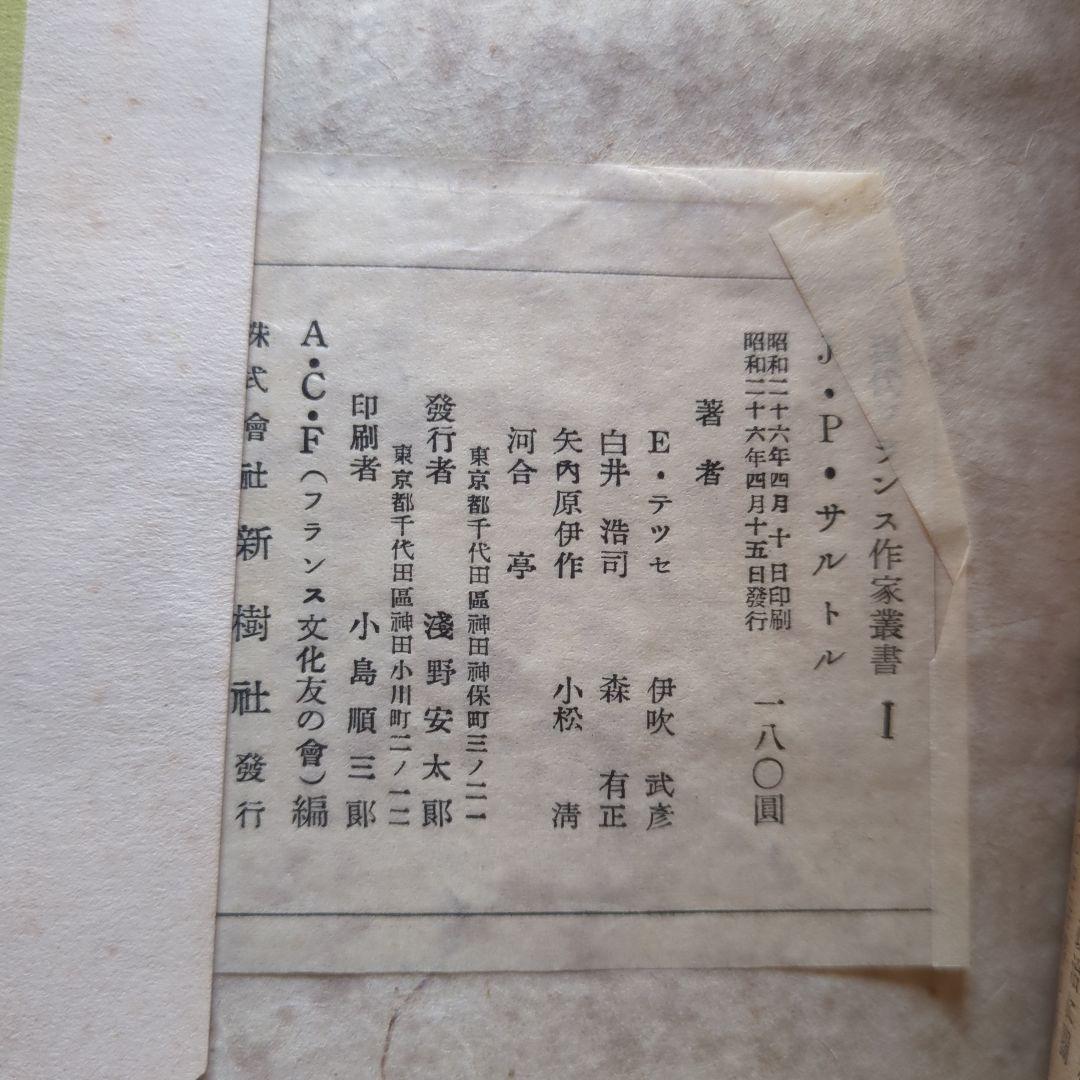 ランス作家叢書 I
J・P・サルトル
昭和二十六年四月 十 日印刷
昭和二十六年四月十五日發行
一八〇圓
著者
E・テツセ 伊吹 武彦
白井 浩司 森 有正
矢內原伊作 小松 淸
河合 亭
東京都千代田區神田神保町三ノ二一
發行者 淺野安太郞
東京都千代田區神田小川町二ノ一二
印刷者 小島順三郞
A・C・F(フランス文化友の會)編
株式會社 新樹社 發行